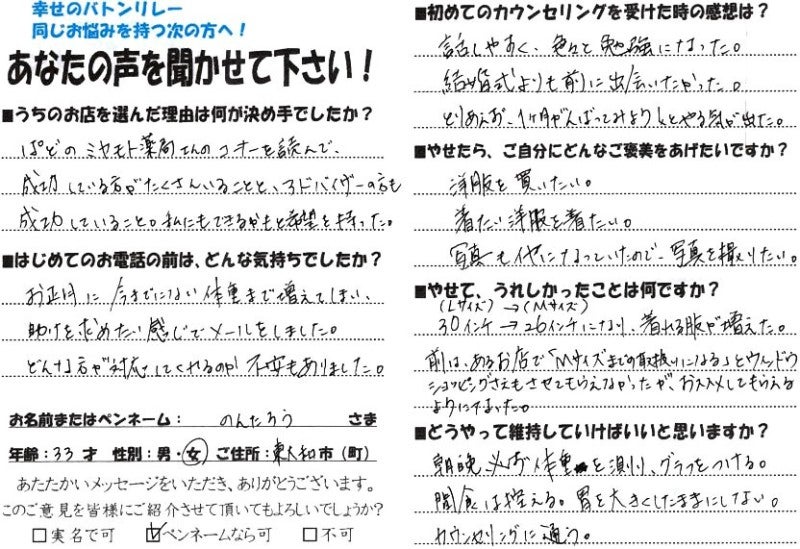 幸せのバトンリレー
同じお悩みを持つ次の方へ！
あなたの声を聞かせて下さい！
■うちのお店を選んだ理由は何が決め手でしたか？
ぱどのミヤモト薬局さんのコーナーを読んで、
成功している方がたくさんいることと、アドバイザーの方も
成功していること。私にもできるかもと希望を持った。
■はじめてのお電話の前は、どんな気持ちでしたか？
お正月に今までにない体重まで増えてしまい、
助けを求めたい感じでメールをしました。
どんな方が対応してくれるのか不安もありました。
お名前またはペンネーム： のんたろう さま
年齢：33才 性別：男・女 ご住所：東大和市（町）
あたたかいメッセージをいただき、ありがとうございます。
このご意見を皆様にご紹介させて頂いてもよろしいでしょうか？
□実名で可 ☑ペンネームなら可 □不可
■初めてのカウンセリングを受けた時の感想は？
話しやすく、色々と勉強になった。
結婚式よりも前に出会いたかった。
とりあえず、1ヶ月がんばってみようとやる気が出た。
■やせたら、ご自分にどんなご褒美をあげたいですか？
洋服を買いたい。
着たい洋服を着たい。
写真もイヤになっていたので、写真を撮りたい。
■やせて、うれしかったことは何ですか？
(Lサイズ)→(Mサイズ)
30インチ→26インチになり、着れる服が増えた。
前は、あるお店で「Mサイズまでの取扱いになる」とウィンドウ
ショッピングさえもさせてもらえなかったが、おススメしてもらえる
ようになった。
■どうやって維持していけばいいと思いますか？
朝晩必ず体重を測り、グラフをつける。
間食は控える。胃を大きくしたままにしない。
カウンセリングに通う。